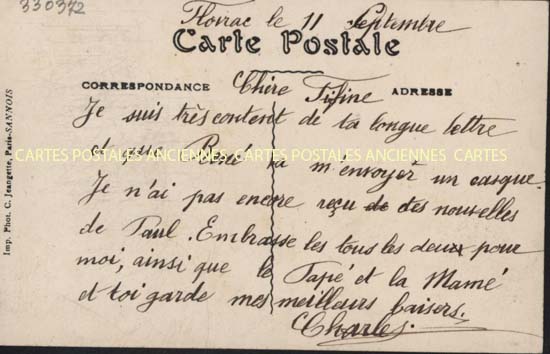 330372
Floirac le 11 Septembre
Carte Postale
CORRESPONDANCE
ADRESSE
Chère Fifine
Je suis très content de ta longue lettre
et que René va m'envoyer un casque.
CARTES POSTALES ANCIENNES CARTES POSTALES ANCIENNES CARTES
Je n'ai pas encore reçu de des nouvelles
de Paul. Embrasse les tous les deux pour
moi, ainsi que le Papé et la Mamé
et toi garde mes meilleurs baisers.
Charles.
Imp. Phot. C. Jeangette, Paris-SANNOIS